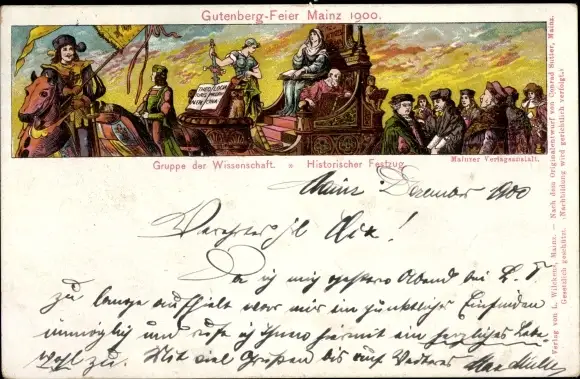 Gutenberg-Feier Mainz 1900.
Gruppe der Wissenschaft. » Historischer Festzug
Mainzer Verlagsanstalt.
Verlag von L. Wilckens, Mainz. — Nach dem Originalentwurf von Conrad Sutter, Mainz.
Gesetzlich geschützt. „Nachbildung wird gerichtlich verfolgt."
Mainz Dezember 1900
Verehrter
Da ich mich gestern Abend bei
zu lange aufhielt war mir ein pünktliches Einfinden
unmöglich und rufe ich Ihnen hiermit ein herzliches Lebe
wohl zu. Mit viel Grüßen bis auf Weiteres Max